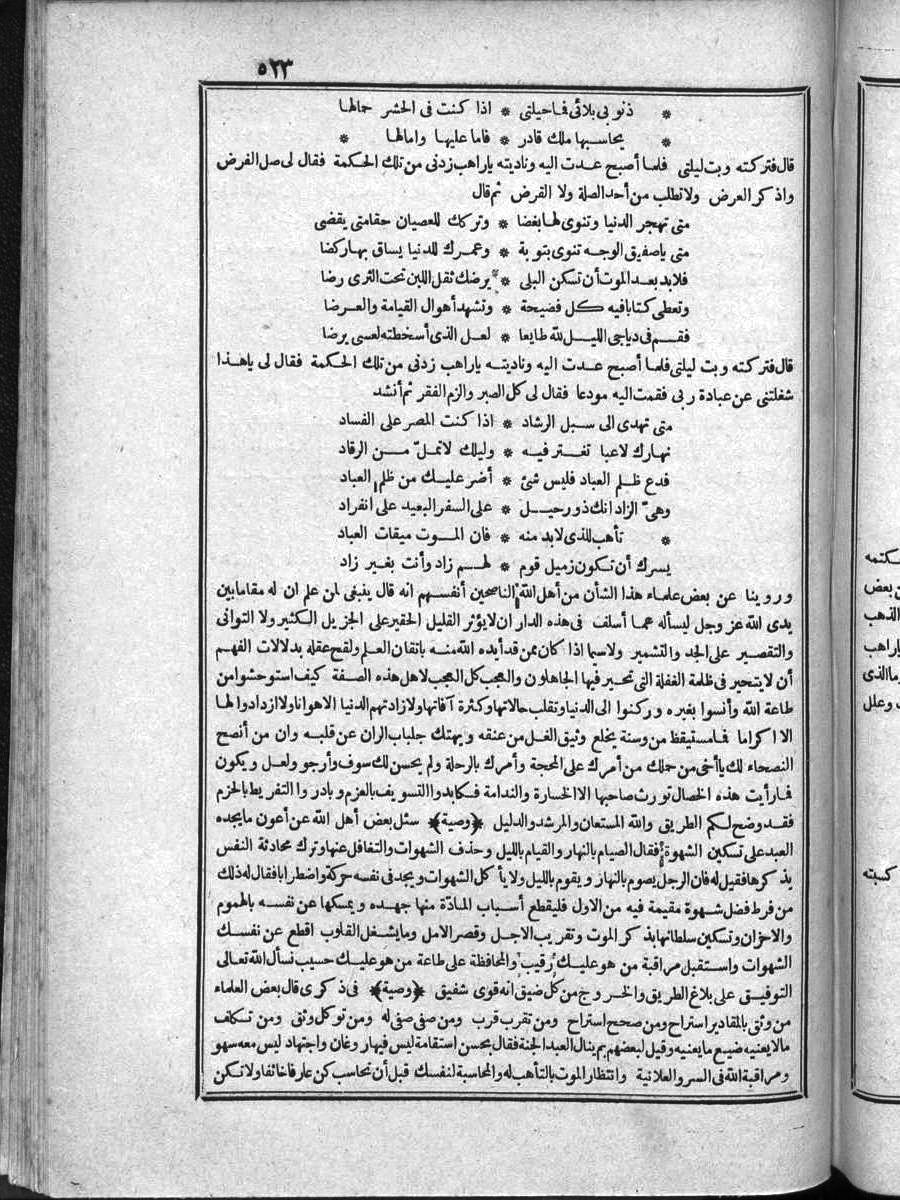 ٥٢٣
* ذنوبى بلائى فما حيلتى * اذا كنت فى الحشر حمالها
* يحاسبها ملك قادر * فاما عليها وامالها *
قال فتركته وبت ليلتى فلما أصبح عدت اليه وناديته ياراهب زدنى من تلك الحكمة فقال لى صل الفرض
واذكر العرض ولا تطلب من أحد الصلة ولا القرض ثم قال
متى تهجر الدنيا وتنوى لها بغضا * وتركك للعصيان حقا متى يقضى
متى ياصفيق الوجه تنوى بتوبة * وعمرك للدنيا يساق بها ركضا
فلابد بعد الموت أن تسكن البلى * يرضك ثقل اللبن تحت الثرى رضا
وتعطى كتابا فيه كل فضيحة * وتشهد أهوال القيامة والعرضا
فقم فى دياجى الليل لله طايعا * لعل الذى أسخطته لعسى يرضا
قال فتركته وبت ليلتى فلما أصبح عدت اليه وناديته ياراهب زدنى من تلك الحكمة فقال لى ياهذا
شغلتنى عن عبادة ربى فقمت اليه مودعا فقال لى كل الصبر والزم الفقر ثم أنشد
متى تهدى الى سبل الرشاد * اذا كنت المصر على الفساد
نهارك لاعبا تغتر فيه * وليلك لا تمل من الرقاد
فدع ظلم العباد فليس شئ * أضر عليك من ظلم العباد
وهئ الزاد انك ذو رحيل * على السفر البعيد على انفراد
* تأهب للذى لابد منه * فان الموت ميقات العباد
يسرك أن تكون زميل قوم * لهم زاد وأنت بغير زاد
وروينا عن بعض علماء هذا الشأن من أهل الله الناصحين أنفسهم انه قال ينبغى لمن علم ان له مقاما بين
يدى الله عز وجل ليسأله عما أسلف فى هذه الدار ان لا يؤثر القليل الحقير على الجزيل الكثير ولا التوانى
والتقصير على الجد والتشمير ولا سيما اذا كان ممن قد أيده الله منه باتقان العلم ولقح عقله بدلالات الفهم
أن لا يتحير فى ظلمة الغفلة التى تحير فيها الجاهلون والعجب كل العجب لاهل هذه الصفة كيف استوحشوا من
طاعة الله وأنسوا بغيره وركنوا الى الدنيا وتقلب حالاتها وكثرة آفاتها ولا زادتهم الدنيا الا هوانا ولا ازدادوا لها
الا اكراما فما مستيقظ من وسنة يخلع وثيق الغل من عنقه ويهتك جلباب الران عن قلبه وان من أنصح
النصحاء لك يا أخى من حملك من أمرك على المحجة وأمرك بالرحلة ولم يحسن لك سوف وأرجو ولعل ويكون
فما رأيت هذه الخصال تورث صاحبها الا الخسارة والندامة فكابدوا التسويف بالعزم وبادروا التفريط بالحزم
فقد وضح لكم الطريق والله المستعان والمرشد والدليل ﴿وصية﴾ سئل بعض أهل الله عن أعون ما يجده
العبد على تسكين الشهوة فقال الصيام بالنهار والقيام بالليل وحذف الشهوات والتغافل عنها وترك محادثة النفس
بذكرها فقيل له فان الرجل يصوم بالنهار ويقوم بالليل ولا يأكل الشهوات ويجد فى نفسه حركة واضطرابا فقال له ذلك
من فرط فضل شهوة مقيمة فيه من الاول فليقطع أسباب المادة منها جهده ويمسكها عن نفسه بالهموم
والاحزان وتسكين سلطانها بذكر الموت وتقريب الاجل وقصر الامل وما يشغل القلوب اقطع عن نفسك
الشهوات واستقبل مراقبة من هو عليك رقيب والمحافظة على طاعة من هو عليك حسيب نسأل الله تعالى
التوفيق على بلاغ الطريق والخروج من كل ضيق انه قوى شفيق ﴿وصية﴾ فى ذكرى قال بعض العلماء
من وثق بالمقادير استراح ومن صحح استراح ومن تقرب قرب ومن صفى صفى له ومن توكل وثق ومن تكلف
مالا يعنيه ضيع ما يعنيه وقيل لبعضهم بم ينال العبد الجنة فقال بحسن استقامة ليس فيها روغان واجتهاد ليس معه سهو
ومراقبة الله فى السر والعلانية وانتظار الموت بالتأهب له والمحاسبة لنفسك قبل أن تحاسب كن عارفا خائفا ولا تكن